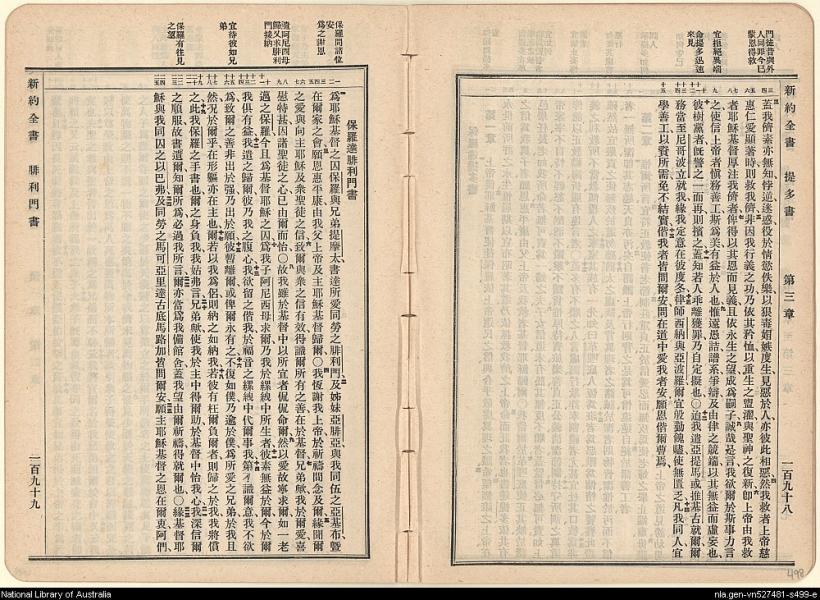 門徒昔與外
人同罪今已
蒙恩得救
宜拒絕異端
命提多迅速
來見
新約全書 提多書 第三章 一百九十八
蓋我儕素亦無知悖逆迷惑役於情慾佚樂以狠毒媢嫉度生見惡於人亦彼此相惡然我救者上帝慈
惠仁愛顯著時則救我儕非因我行義之功乃依其矜恤以重生之盥濯與聖神之復新卽上帝由我救
者耶穌基督厚注我儕者俾得以其恩而見義且依永生之望成爲嗣子誠哉是言我欲爾於斯事力言
之使信上帝者愼務善工斯爲美有益於人也惟遠愚詰譜系爭辯及由律之競端以其無益而虛妄也
彼樹黨者旣警之一而再則擯之蓋知若人乖離獲罪乃自定擬也〇迨我遣亞提馬或推基古就爾爾
務當至尼哥波立就我緣我定意在彼度冬律師西納與亞波羅爾宜殷勤餞𧸐使無匱乏凡我同人宜
學善工以資所需免不結實偕我者皆問爾安問在道中愛我者安願恩偕爾曹焉
保羅問諸位
安
爲之謝恩
遣阿尼西母
歸又求腓利
門接納
宜待彼如兄
弟
保羅有往見
之望
保羅達腓利門書
爲耶穌基督之囚保羅與兄弟提摩太書達所愛同勞之腓利門及姊妹亞腓亞與我同伍之亞基布暨
在爾家之會願恩惠平康由我父上帝及主耶穌基督歸爾〇我恆謝我上帝於祈禱間念及爾緣聞爾
之愛與向主耶穌及衆聖徒之信致爾與衆之信有效得識爾所有之善在於基督兄弟歟我於爾愛喜
慰特甚因諸聖徒之心已由爾而怡〇故我雖於基督中以所宜者侃侃命爾然以愛故寧求爾如一老
邁之保羅今且爲基督耶穌之囚爲我子阿尼西母求爾乃我於縲絏中所生者彼素無益於爾今於爾
我俱有益我遣之歸爾彼乃我之心我欲留之偕我於福音之縲絏中代爾事我第不識爾意我不欲
爲致爾之善非出於強乃出於願彼暫離爾或俾爾永有之不復如僕乃逾於僕爲所愛之兄弟於我且
然況於爾乎在形軀亦在主也爾若以我爲侶則納之如納我若彼有枉爾負爾者則歸之於我我將償
之此我保羅之手書也爾之身負我我姑弗言兄弟歟使我於主中得爾助於基督中怡我心我深信爾
之順服故書達爾知爾所爲必過我所言爾亦當爲我備館舍蓋我望由爾祈禱得就爾也〇緣基督耶
穌與我同囚之以巴弗及同勞之馬可亞里達古底馬路加皆問爾安願主耶穌基督之恩在爾衷阿們
新約全書 腓利門書 一百九十九
498
National Library of Australia
nla.gen-vn527481-s499-e